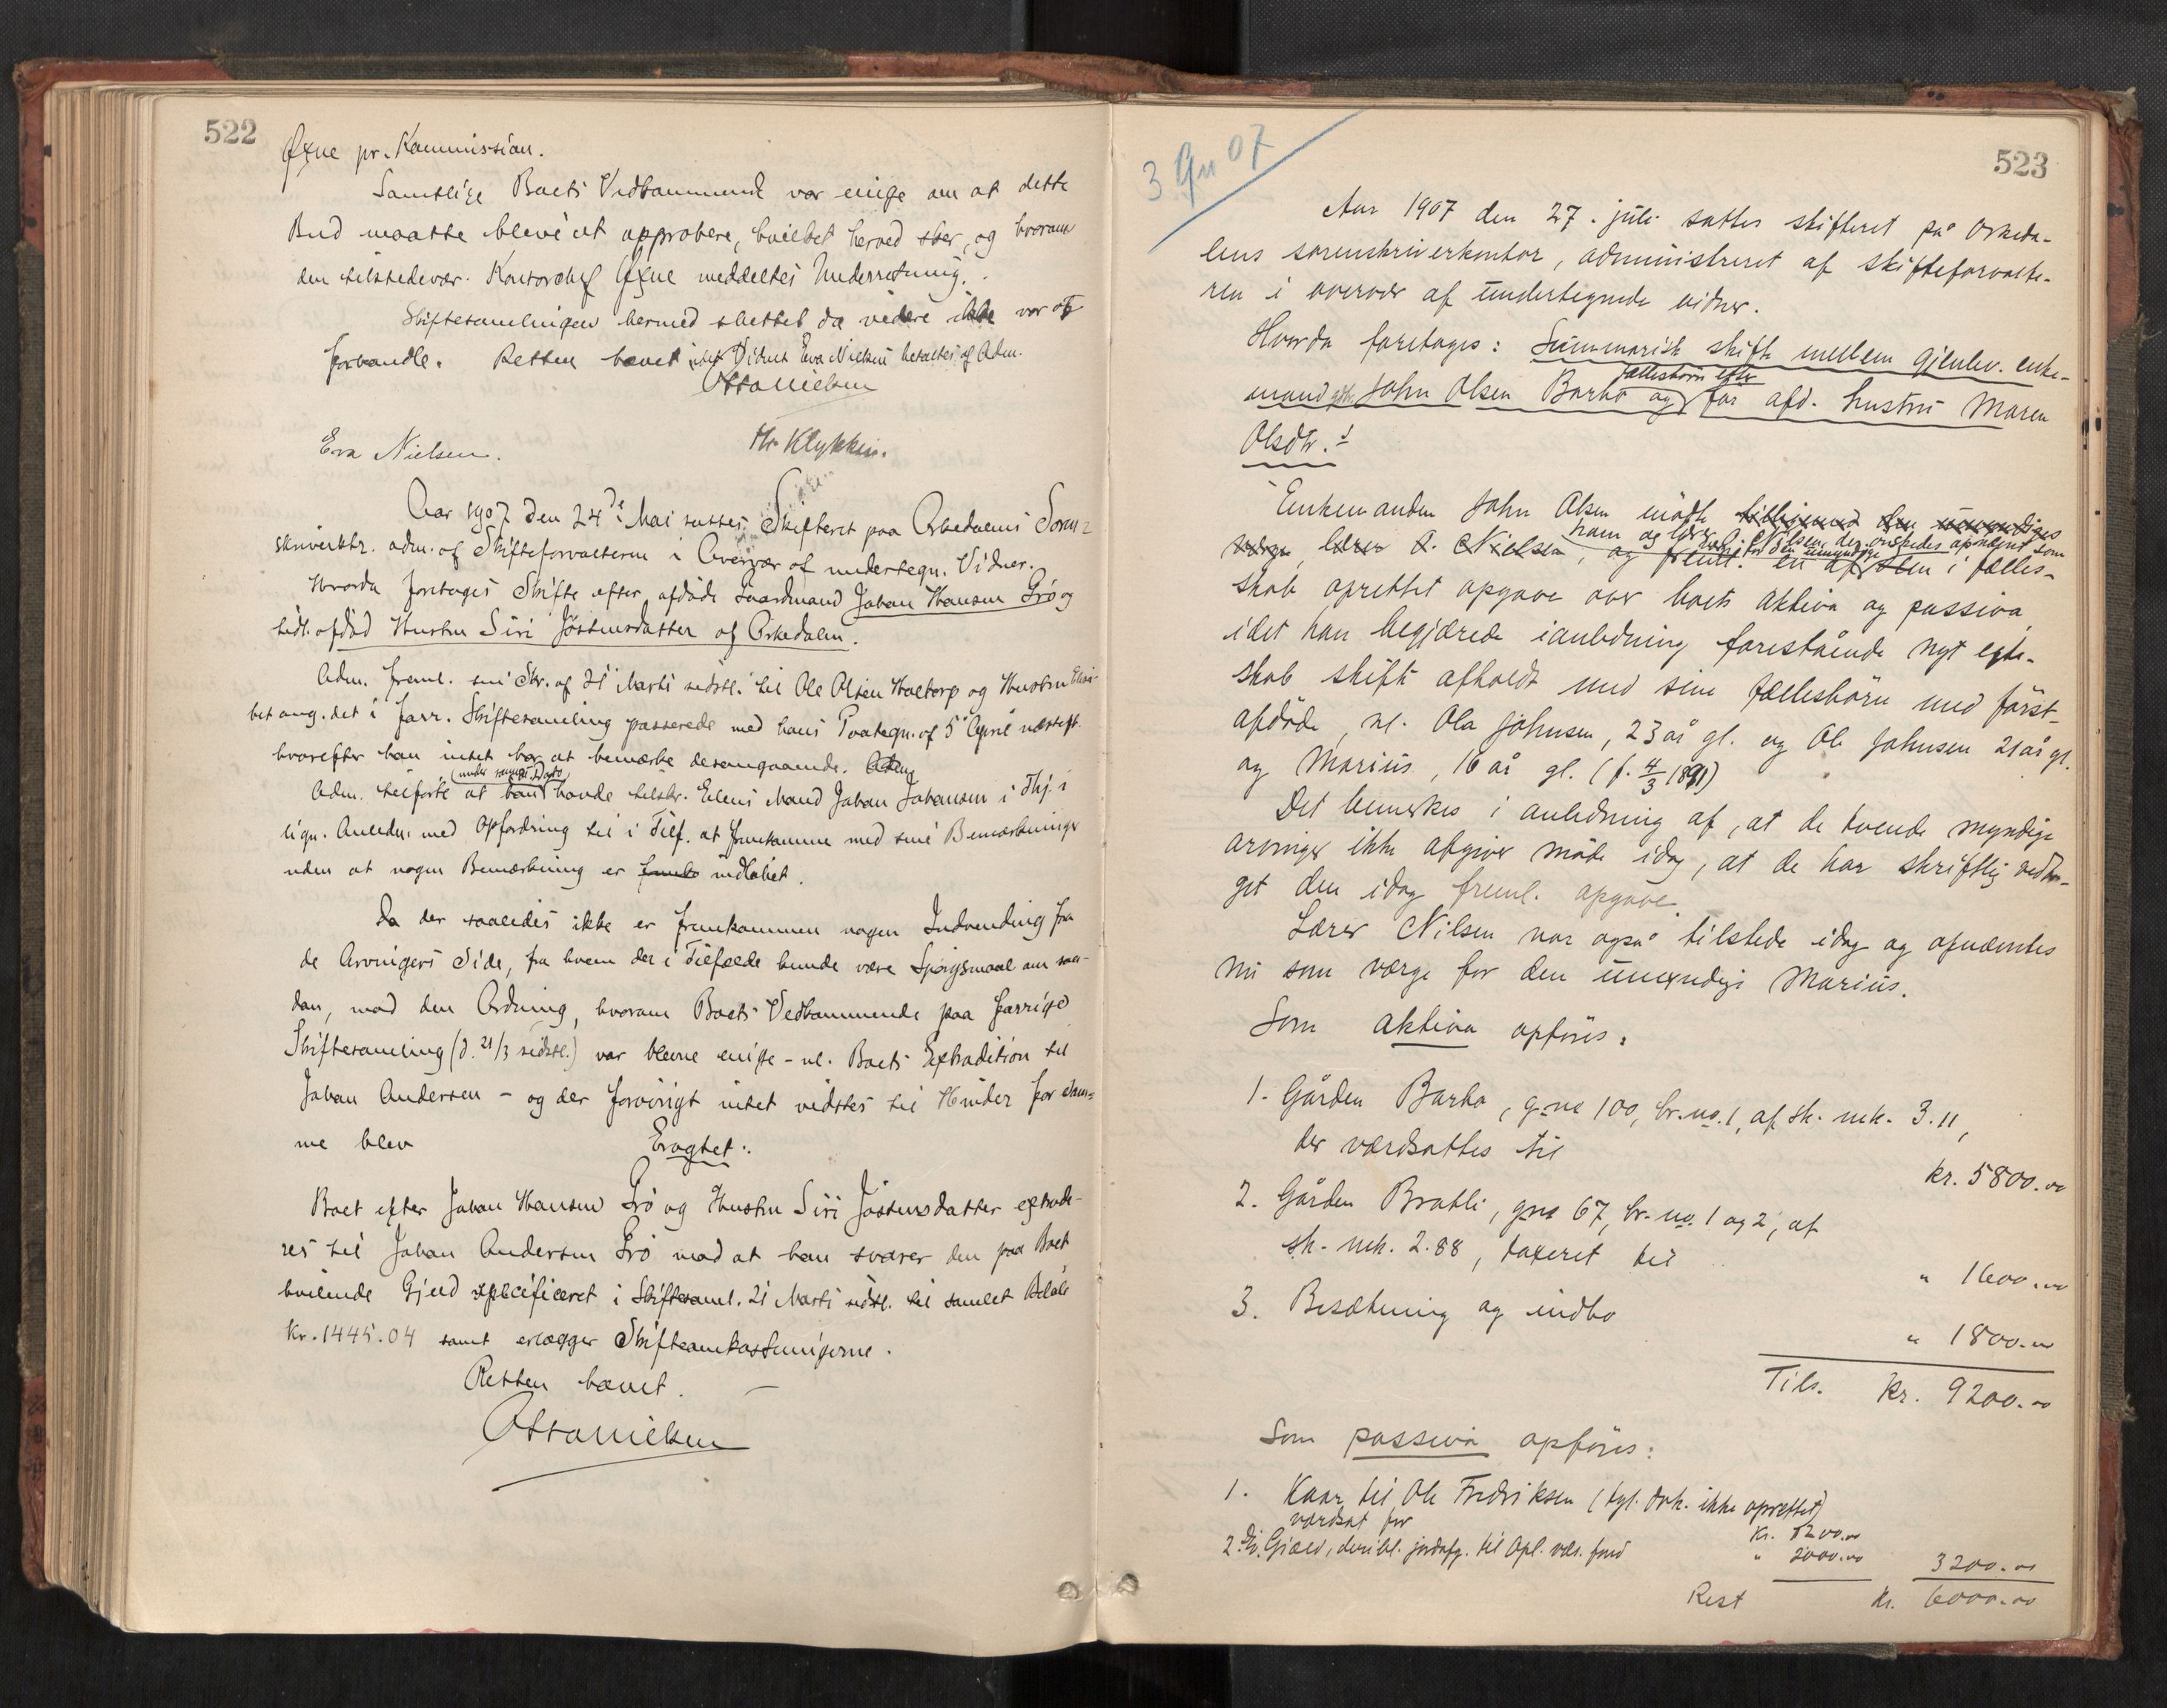 522
Øxne pr. Kommission.
Samtlige Boets Vedkommende var enige om at dette
Bud maatte blive at approbere, hvilket herved sker, og hvorom
den tilstedevær. Kontorchef Øxne meddeltes Underretning.
Skiftesamlingen hermed sluttet da videre ikke var at
forhandle. Retten hævet Vidnet Eva Nielsen betaltes af Adm.
Otto Nielsen
Eva Nielsen. Hr. Klykken.
Aar 1907 den 24de Mai sattes Skifteret paa Orkedalens Soren-
skriverktr. adm. af Skifteforvalteren i Overvær af undertegn. Vidner.
Hvorda foretoges Skifte efter afdøde Gaardmand Johan Hansen Grø og
tidl. afdød Hustru Siri Jöstensdatter af Orkedalen.
Adm. freml. sin Skr. af 21 Marts sidstl. til Ole Olsen Holtorp og Hustru Elisa-
bet ang. det i forr. Skiftesamling passerede med hans Paategn. af 5 April næsteft.
hvorefter han intet har at bemærke desangaaende. Adm.
(under samme Dato)
Adm. tilførte at han havde tilskr. Elens Mand Johan Johansen i Thj. i
lign. Anledn. med Opfordring til i Tilf. at fremkomme med sine Bemærkninger
uden at nogen Bemærkning er indløbet.
Da der saaledes ikke er fremkommen nogen Indvending fra
de Arvingers Side, fra hvem der i Tilfælde kunde være Spörgsmaal om saa-
dan, mod den Ordning, hvorom Boets Vedkommende paa forrige
Skiftesamling (d. 21/3 sidstl.) var blevne enige - nl. Boets Extradition til
Johan Andersen - og der forøvrigt intet vidstes til Hinder for sam-
me blev Eragtet:
Boet efter Johan Hansen Grø og Hustru Siri Jöstensdatter extrade-
res til Johan Andersen Grø mod at han svarer den paa Boet
hvilende Gjeld specificeret i Skiftesaml. 21 Marts sidstl. til samlet Beløb
Kr. 1445.04 samt erlægger Skifteomkostningerne.
Retten hævet.
Otto Nielsen
523
3 Gn 07
Aar 1907 den 27. juli sattes skifteret på Orkeda-
lens sorenskriverkontor, administreret af skifteforvalte-
ren i overvær af undertegnede vidner.
Hvorda foretoges: Summarisk skifte mellem gjenlev. enke-
fællesbörn efter
mand John Olsen Barbo og för afd. hustru Maren
Olsdtr.
Enkemanden John Olsen mödte tilligemed den umyndiges
ham og lærer O. Nilsen, der önskedes opnævnt som
værge, lærer O. Nielsen, og freml. en af i fælles-
værge for den umyndige
skab oprettet opgave over boets aktiva og passiva,
idet han begjærede ianledning forestående nyt egte-
skab skifte afholdt med sine fællesbörn med först-
afdöde, nl. Ola Johnsen, 23 år gl. og Ole Johnsen 21 år gl.
og Marius, 16 år gl. (f. 4/3 1891)
Det bemerkes i anledning af, at de tvende myndige
arvinger ikke afgiver möde idag, at de har skriftlig vedta-
get den idag freml. opgave.
Lærer Nilsen var også tilstede idag og opnævntes
nu som værge for den umyndige Marius.
Som aktiva opföres:
1. Gården Barbo, g-no 100, br.-no. 1, af sk. mk. 3.11,
der værdsattes til kr. 5800.00
2. Gården Bratli, g-no 67, br.-no. 1 og 2, af
sk.-mk. 2.88, taxeret til " 1600.00
3. Besætning og indbo " 1800.00
Tils. Kr. 9200.00
Som passiva opföres:
1. Kaar til Ole Fredriksen (tgl. dok. ikke oprettet)
værdsat for Kr. 1200.00
2. Div. Gjæld, deribl. jordafg. til Opl. væs. fond " 2000.00 3200.00
Rest Kr. 6000.00